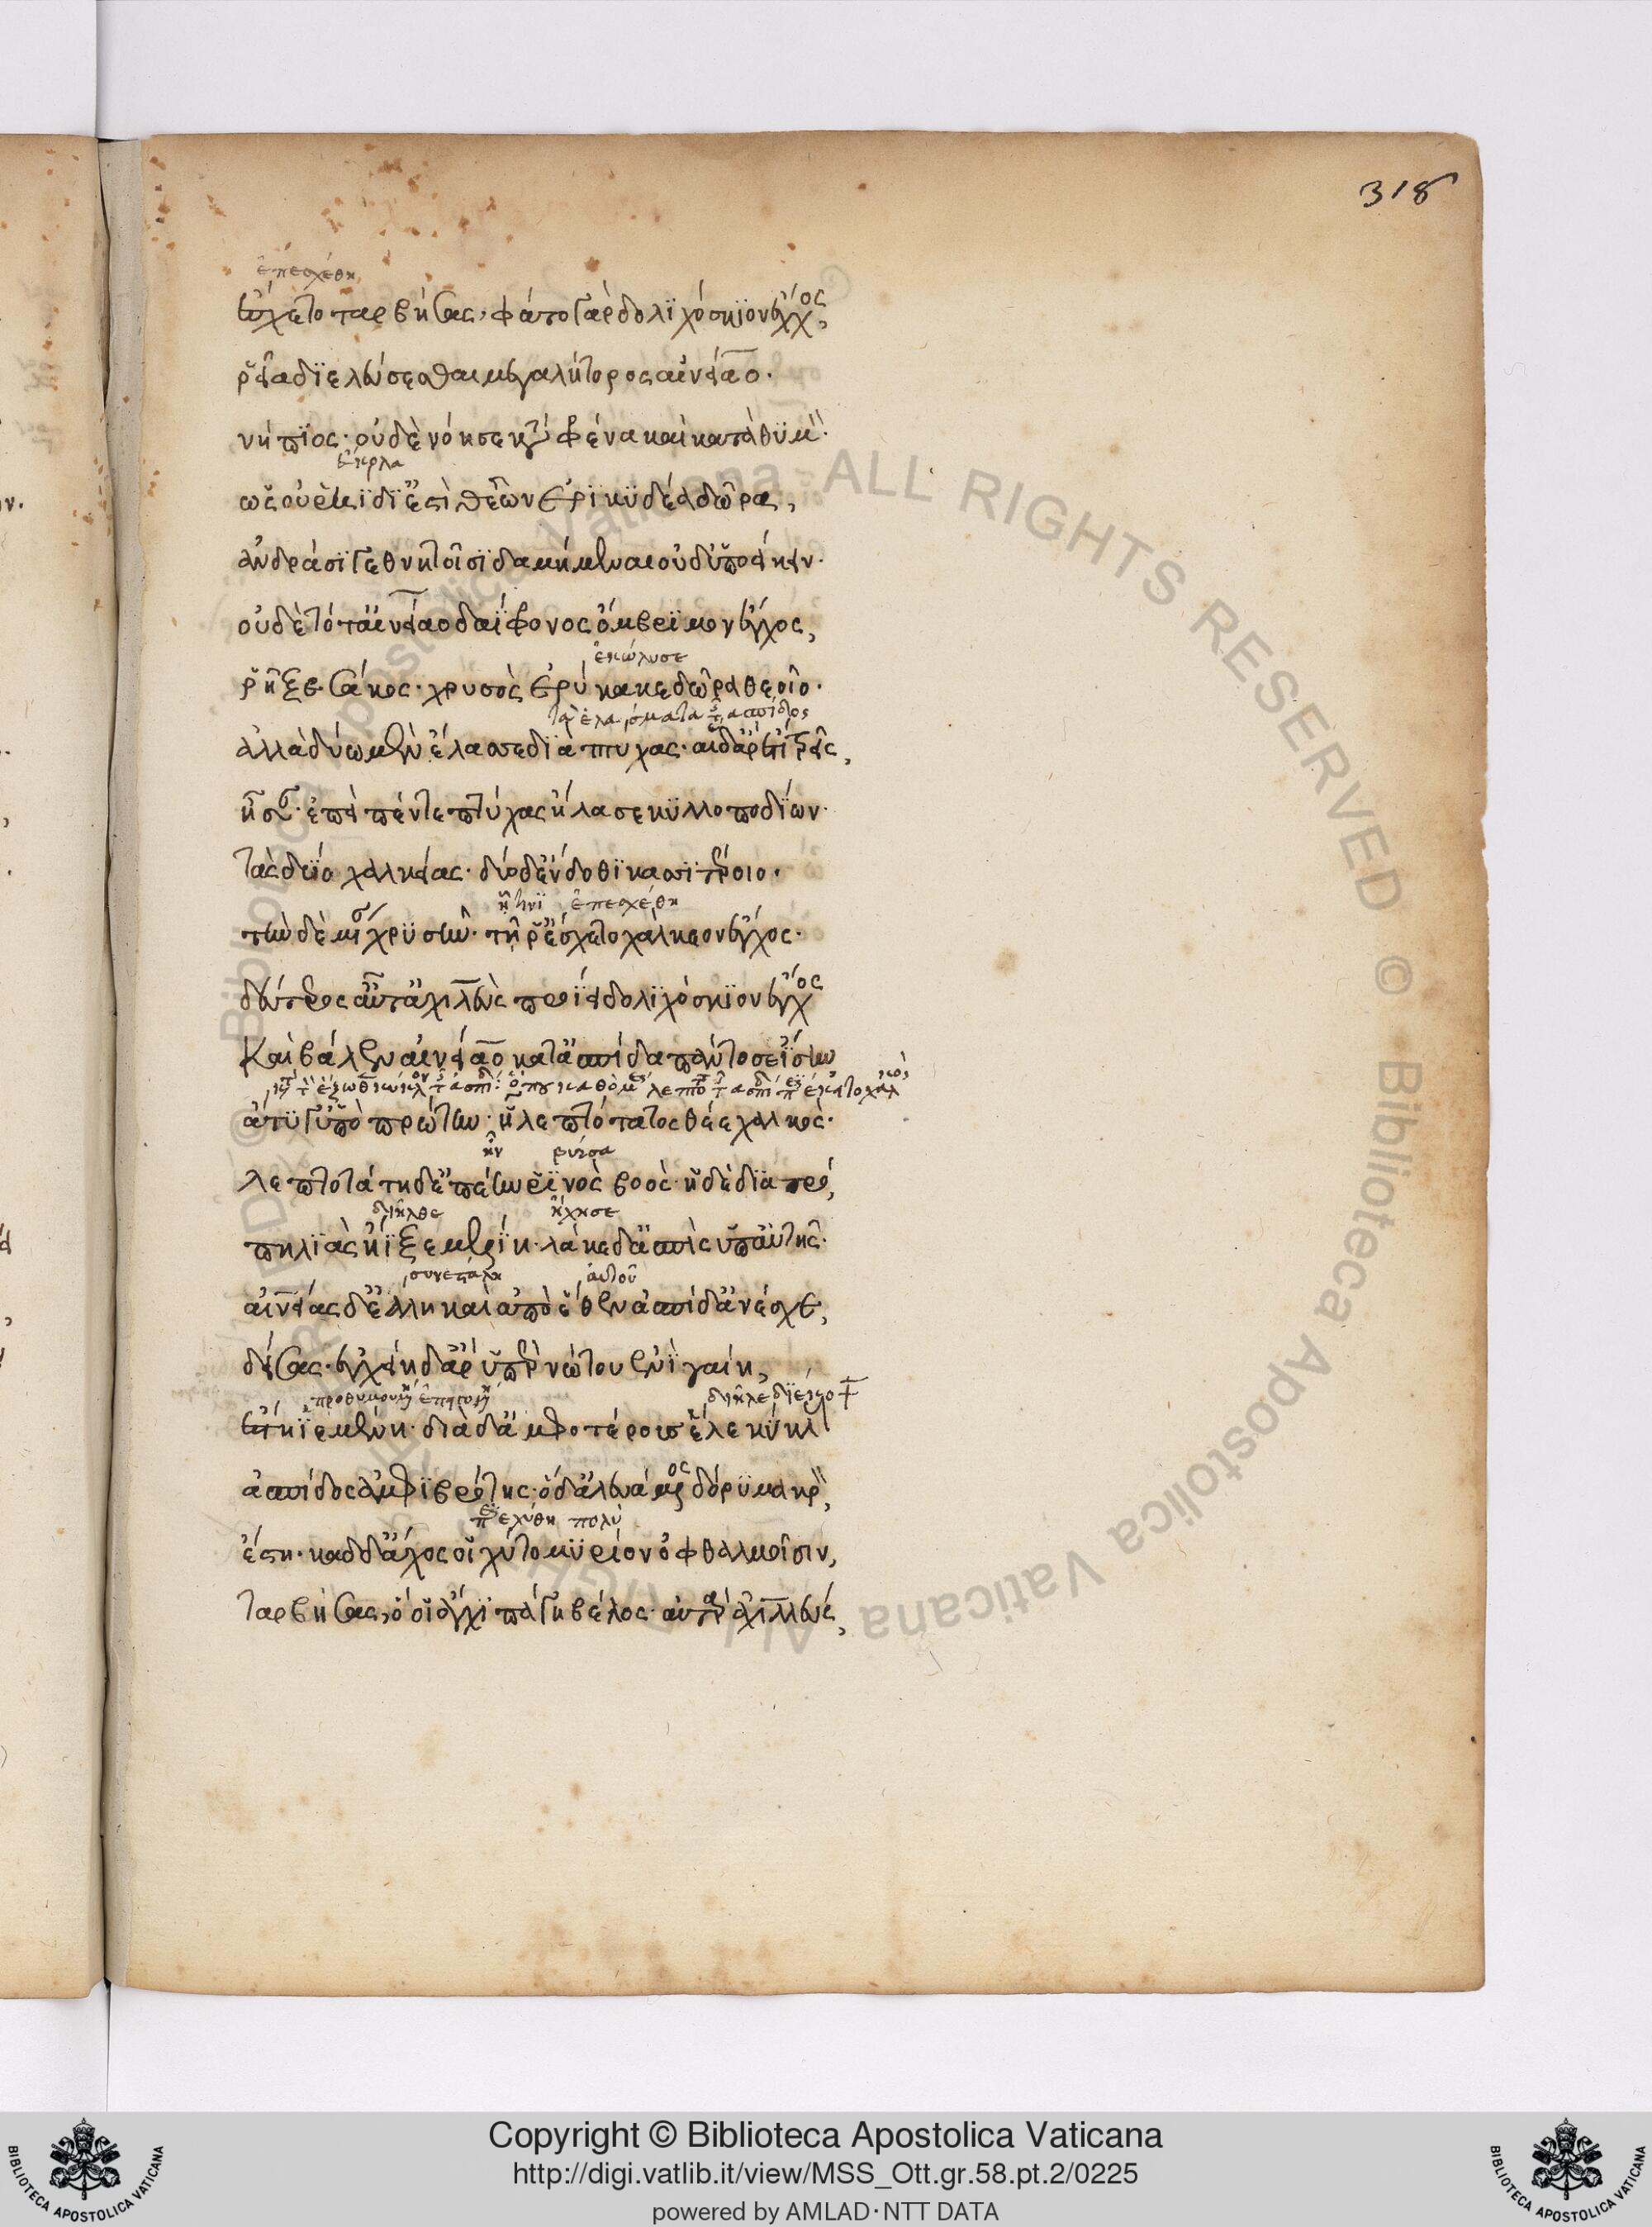 318
ἐπεσχέθη
ἔσχετο ταρβήσας· φάτο γὰρ δολιχόσκιον ἔγχος,
ῥεῖα διελεύσεσθαι μεγαλήτορος αἰνείαο.
νήπιος· οὐδὲ νόησε κατὰ φρένα καὶ κατὰ θυμὸν·
ὡς οὐ ῥηΐδι' ἐστὶ θεῶν ἐρικυδέα δῶρα,
ἀνδράσι γε θνητοῖσι δαμήμεναι οὐδ' ὑποείκειν·
οὐδὲ τότ' αἰνείαο δαΐφρονος ὄμβριμον ἔγχος,
ἐκώλυσε
ῥῆξε σάκος· χρυσὸς ἐρύκακε δῶρα θεοῖο·
ἀλλὰ δύω μὲν ἔλασσε διὰ πτυχας· αἱ δ' ἄρ' ἔτι τρεῖς,
ἦσαν· ἐπεὶ πέντε πτύχας ἤλασε κυλλοποδίων·
τὰς δύο χαλκείας· δύο δ' ἔνδοθι κασσιτέροιο·
ἐπεσχέθη
τὴν δὲ μίαν χρυσῆν· τῇ ῥ' ἔσχετο χάλκεον ἔγχος·
δεύτερος αὖτ' ἀχιλλεὺς προΐει δολιχόσκιον ἔγχος
Καὶ βάλεν αἰνείαο κατ' ἀσπίδα πάντοσ' ἐΐσην
ἄντυγ' ὕπο πρώτην· ᾗ λεπτότατος θέε χαλκὸς·
ἦν βύρσα
λεπτοτάτη δ' ἐπέην ῥινὸς βοὸς· ἡ δὲ διὰ πρό,
διῆλθε ἤχησε
πηλιὰς ἤϊξε μελίη· λάκε δ' ἀσπὶς ὑπ' αὐτῆς·
αὐτοῦ
αἰνείας δ' ἐάλη καὶ ἀπὸ ἕθεν ἀσπίδ' ἀνέσχε,
δείσας· ἐγχείη δ' ἄρ' ὑπὲρ νώτου ἐνὶ γαίῃ,
ἔστη ἱεμένη· διὰ δ' ἀμφοτέρους ἕλε κύκλ
ἀσπίδος ἀμφιβρότης· ὁ δ' ἀλευάμενος δόρυ μακρὸν,
ἐχύθη πολὺ
ἔστη· καδ δ' ἄχος οἱ χύτο μυρίον ὀφθαλμοῖσιν,
ταρβήσας, ὅ οἱ ἄγχι πάγη βέλος· αὐτὰρ ἀχιλλεύς,
Copyright © Biblioteca Apostolica Vaticana
http://digi.vatlib.it/view/MSS_Ott.gr.58.pt.2/0225
powered by AMLAD·NTT DATA